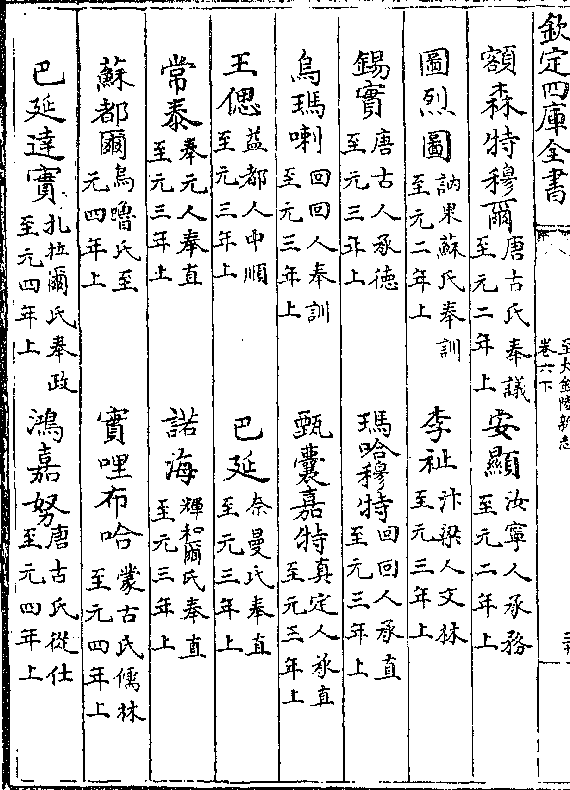 欽定四庫全書
至大金陵新志
卷六下
額森特穆爾唐古氏奉議至元二年上 安顯汝寧人承務至元二年上
圖烈圖訥來蘇氏奉訓至元二年上 李祉汴梁人文林至元三年上
錫寶唐古人承德至元三年上 瑪哈穆特回回人承直至元三年上
烏瑪喇回回人奉訓至元三年上 甄囊嘉特真定人承直至元三年上
王偲益都人中順至元三年上 巴延奈曼氏奉直至元三年上
常泰奉元人奉直至元三年上 諾海輝和爾氏奉直至元三年上
蘇都爾烏嚕氏至元四年上 實哩布哈蒙古氏儒林至元四年上
巴延達實扎拉爾氏奉政至元四年上 鴻嘉努唐古氏從仕至元四年上